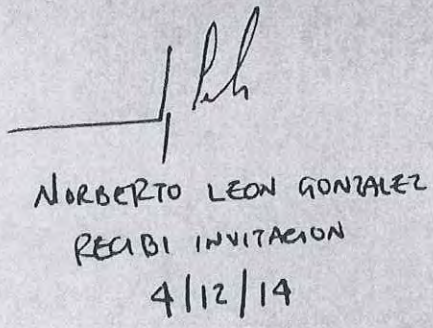 NORBERTO LEON GONZALEZ
RECIBI INVITACION
4/12/14